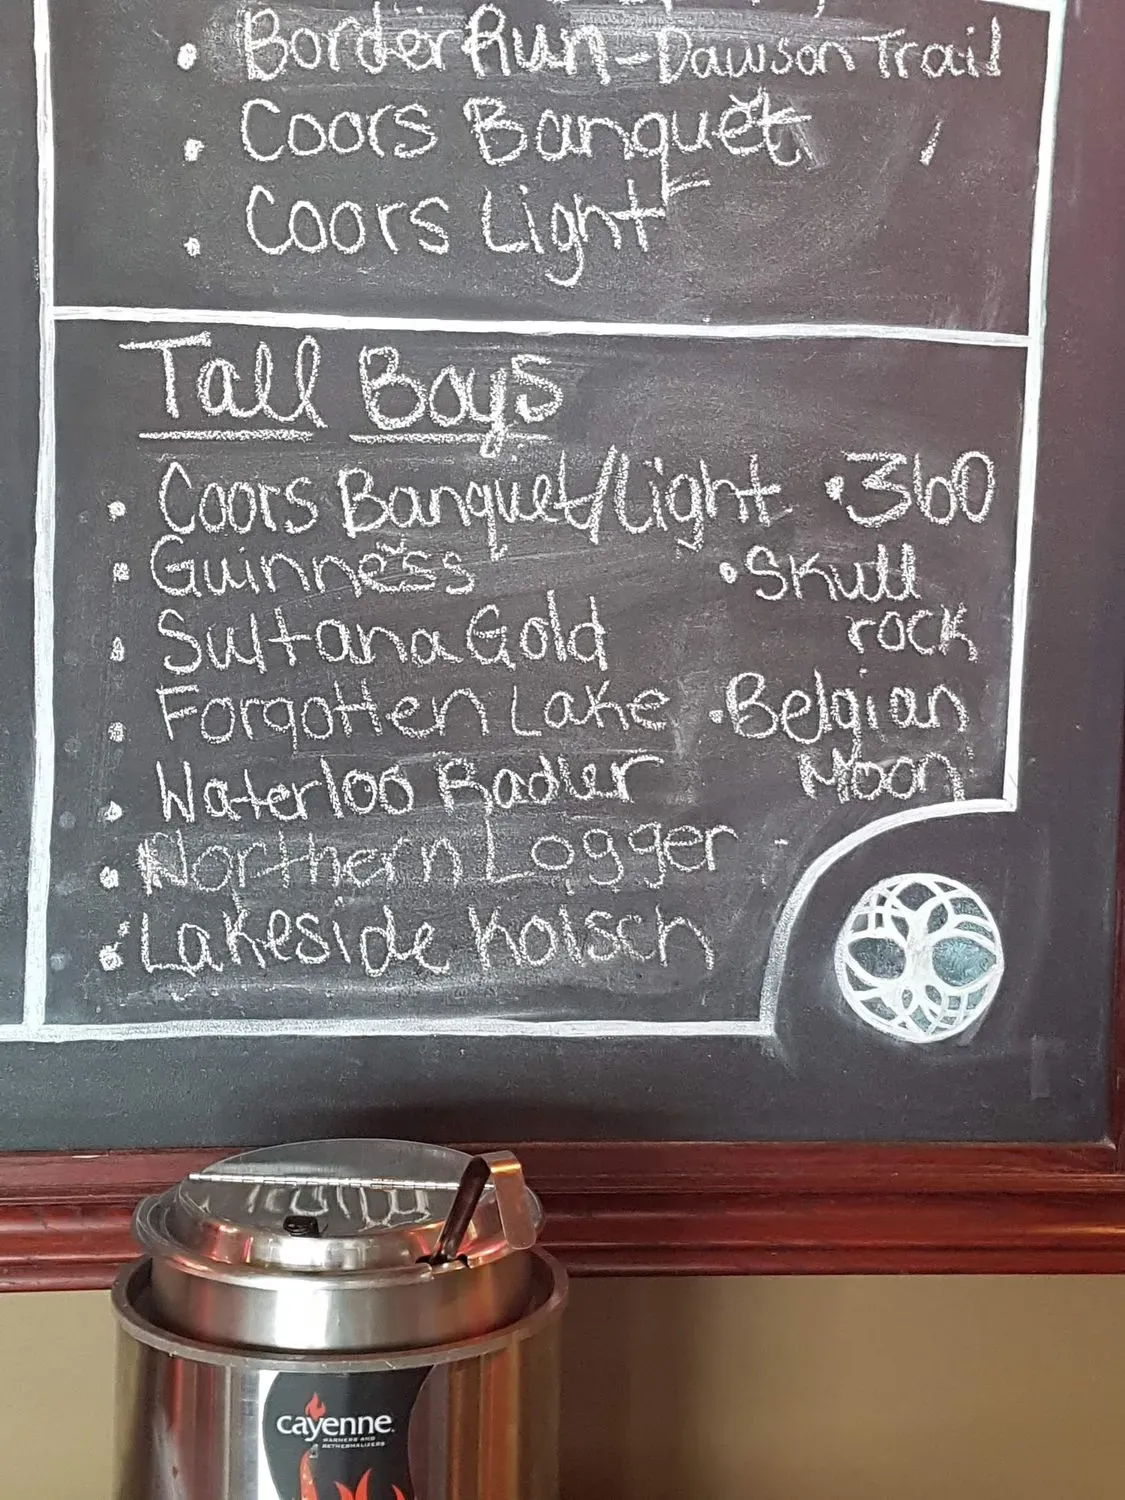 • Border Run - Dawson Trail
• Coors Banquet
• Coors Light
Tall Boys
• Coors Banquet/Light
• Guinness
• Sultana Gold
• Forgotten Lake
• Waterloo Radler
• Northern Logger
• Lakeside Kolsch
• 360
• Skull
rock
• Belgian
Moon
cayenne
WARMERS AND
RETHERMALIZERS